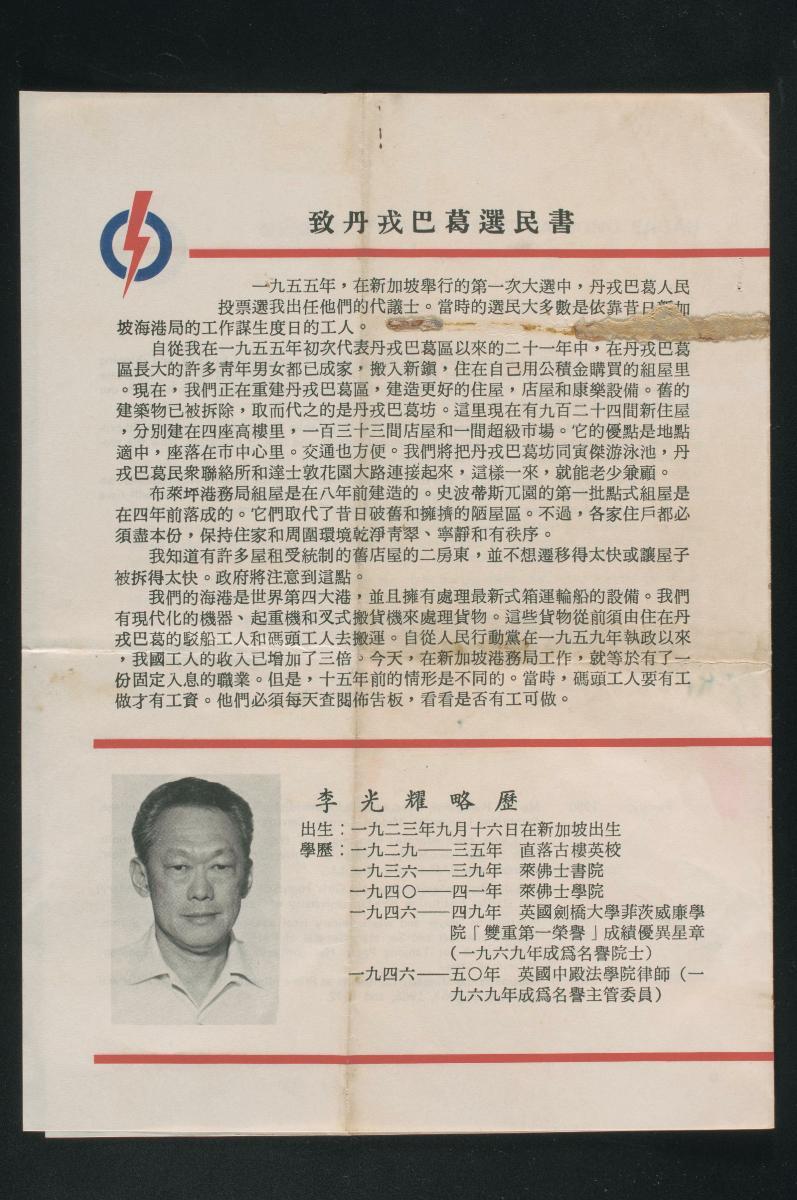 致丹戎巴葛選民書
一九五五年，在新加坡舉行的第一次大選中，丹戎巴葛人民
投票選我出任他們的代議士。當時的選民大多數是依靠昔日新加
坡海港局的工作謀生度日的工人。
自從我在一九五五年初次代表丹戎巴葛區以來的二十一年中，在丹戎巴葛
區長大的許多靑年男女都已成家，搬入新鎭，住在自己用公積金購買的組屋里
。現在，我們正在重建丹戎巴葛區，建造更好的住屋，店屋和康樂設備。舊的
建築物已被拆除，取而代之的是丹戎巴葛坊。這里現在有九百二十四間新住屋
，分別建在四座高樓里，一百三十三間店屋和一間超級市場。它的優點是地點
適中，座落在市中心里。交通也方便。我們將把丹戎巴葛坊同寅傑游泳池，丹
戎巴葛民衆聯絡所和達士敦花園大路連接起來，這樣一來，就能老少兼顧。
布萊坪港務局組屋是在八年前建造的。史波蒂斯兀園的第一批點式組屋是
在四年前落成的。它們取代了昔日破舊和擁擠的陋屋區。不過，各家住戶都必
須盡本份，保持住家和周圍環境乾淨靑翠、寧靜和有秩序。
我知道有許多屋租受統制的舊店屋的二房東，並不想遷移得太快或讓屋子
被拆得太快。政府將注意到這點。
我們的海港是世界第四大港，並且擁有處理最新式箱運輪船的設備。我們
有現代化的機器、起重機和叉式搬貨機來處理貨物。這些貨物從前須由住在丹
戎巴葛的駁船工人和碼頭工人去搬運。自從人民行動黨在一九五九年執政以來
，我國工人的收入已增加了三倍。今天，在新加坡港務局工作，就等於有了一
份固定入息的職業。但是，十五年前的情形是不同的。當時，碼頭工人要有工
做才有工資。他們必須每天查閱佈告板，看看是否有工可做。
李光耀略歷
出生：一九二三年九月十六日在新加坡出生
學歷：一九二九——三五年　直落古樓英校
一九三六——三九年　萊佛士書院
一九四〇——四一年　萊佛士學院
一九四六——四九年　英國劍橋大學菲茨威廉學
院「雙重第一榮譽」成績優異星章
(一九六九年成爲名譽院士)
一九四六——五〇年　英國中殿法學院律師（一
九六九年成爲名譽主管委員）